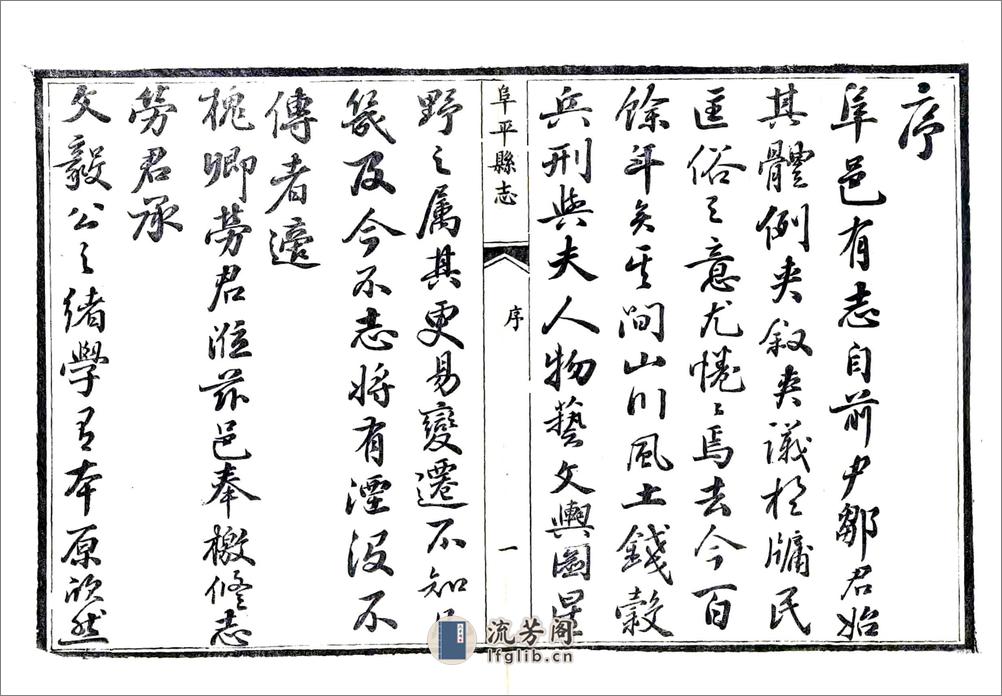 序
阜邑有志自前尹鄒君始
其體例夾叙夾議於牖民
匡俗之意尤惓惓焉去今百
餘年矣其間山川風土錢穀
兵刑與夫人物藝文輿圖星
阜平縣志
序
一
野之属其更易變遷不知凡
幾及今不志將有湮没不
傳者適
槐卿勞君涖茲邑奉檄修志
勞君承
文毅公之緒學有本原欣然
流芳阁
lfglib.cn